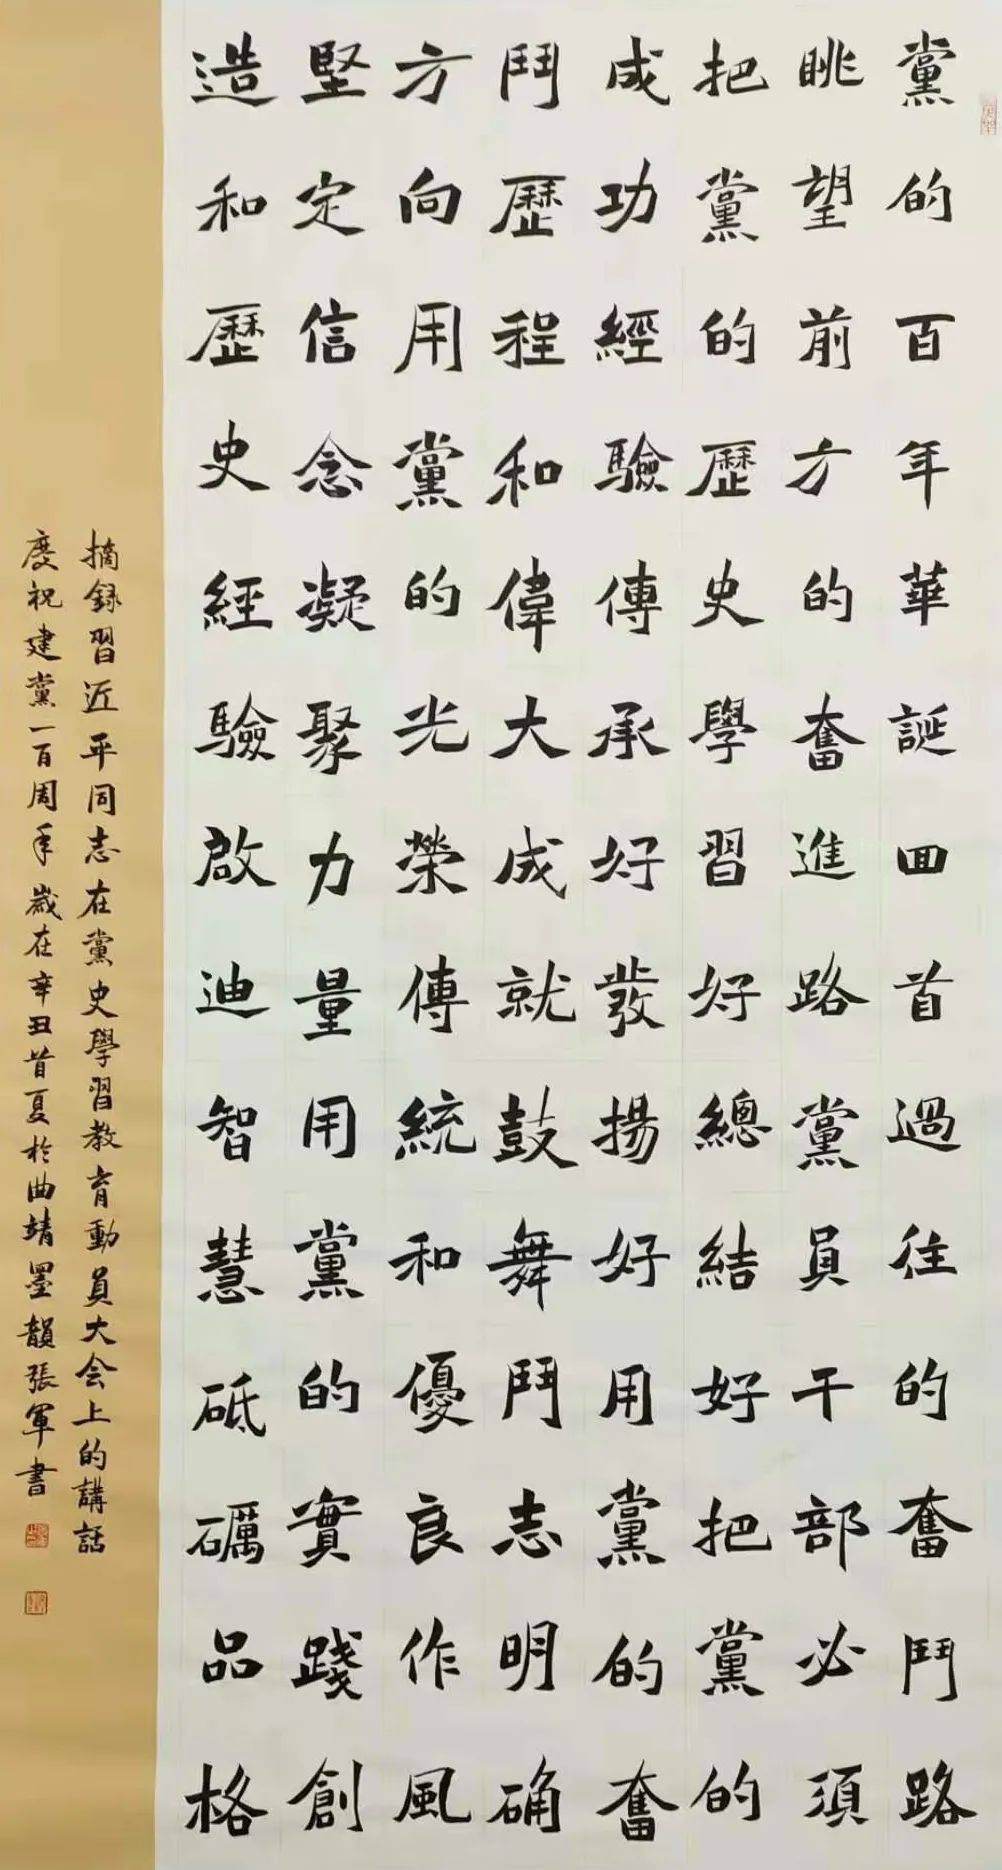 黨的百年華誕回首過往的奮鬥路
眺望前方的奮進路黨員干部必須
把黨的歷史學習好總結好把黨的
成功經驗傳承好發揚好用黨的奮
鬥歷程和偉大成就鼓舞鬥志明确
方向用黨的光榮傳統和優良作風
堅定信念凝聚力量用黨的實踐創
造和歷史經驗啟迪智慧砥礪品格
摘録習近平同志在黨史學習教育動員大会上的講話
慶祝建黨一百周年歲在辛丑首夏於曲靖墨韻張軍書